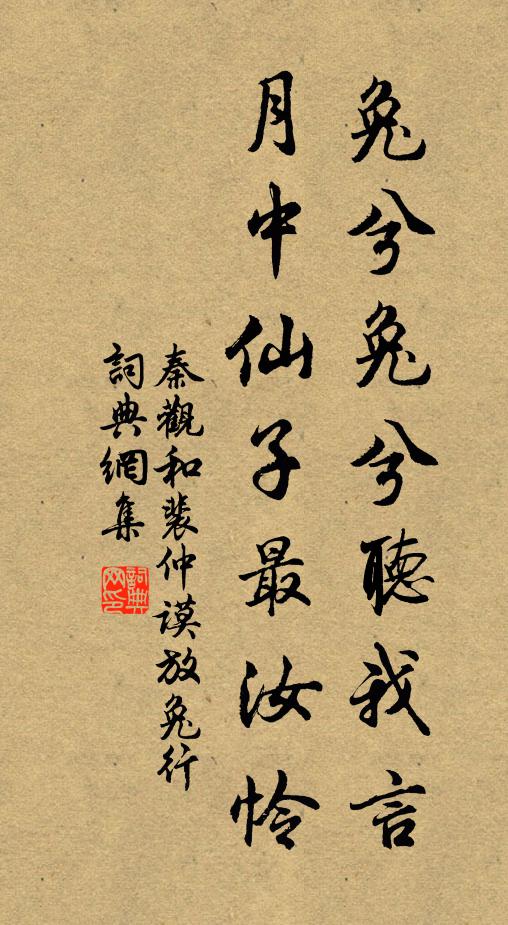 兔兮兔兮聽我言
月中仙子最汝怜
秦觀和裴仲謨放兔行
詞典網集
詞典网印